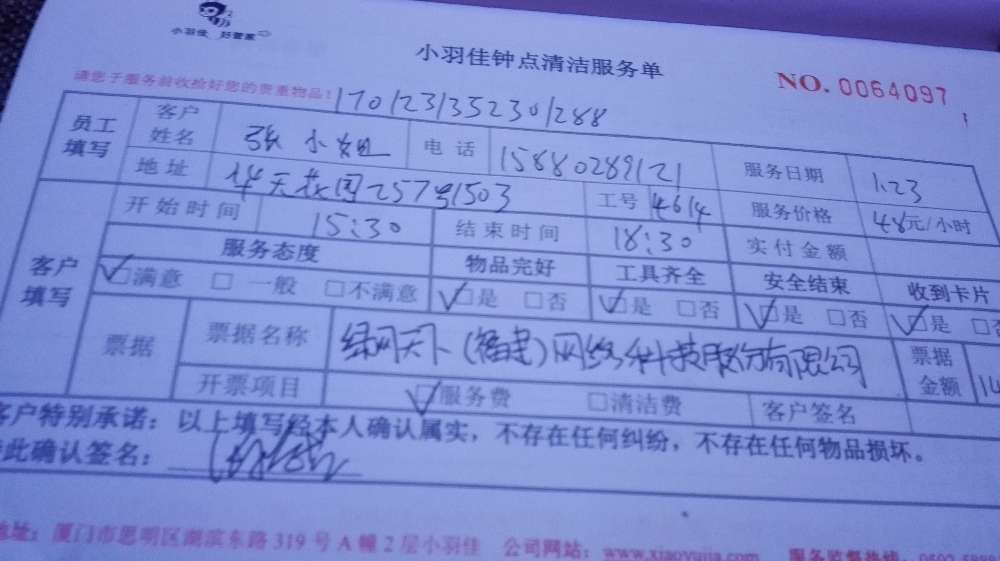 小羽佳 好管家
小羽佳钟点清洁服务单
NO. 0064097
请您于服务前收捡好您的贵重物品!
1701231352301288
员工填写 客户姓名 张小姐 电话 15880289121 服务日期 1.23
地址 华天花园257号1503 工号 4614 服务价格 48元/小时
客户填写 开始时间 15:30 结束时间 18:30 实付金额
服务态度 物品完好 工具齐全 安全结束 收到卡片
☑满意 □一般 □不满意 ☑是 □否 ☑是 □否 ☑是 □否 ☑是
票据 票据名称 绿网天下(福建)网络科技股份有限公司 票据金额 14
开票项目 ☑服务费 □清洁费 客户签名
客户特别承诺：以上填写经本人确认属实，不存在任何纠纷，不存在任何物品损坏。
此确认签名：
地址：厦门市思明区湖滨东路319号A幢2层小羽佳 公司网站：www.xiaoyujia.com 服务监督热线：0592-